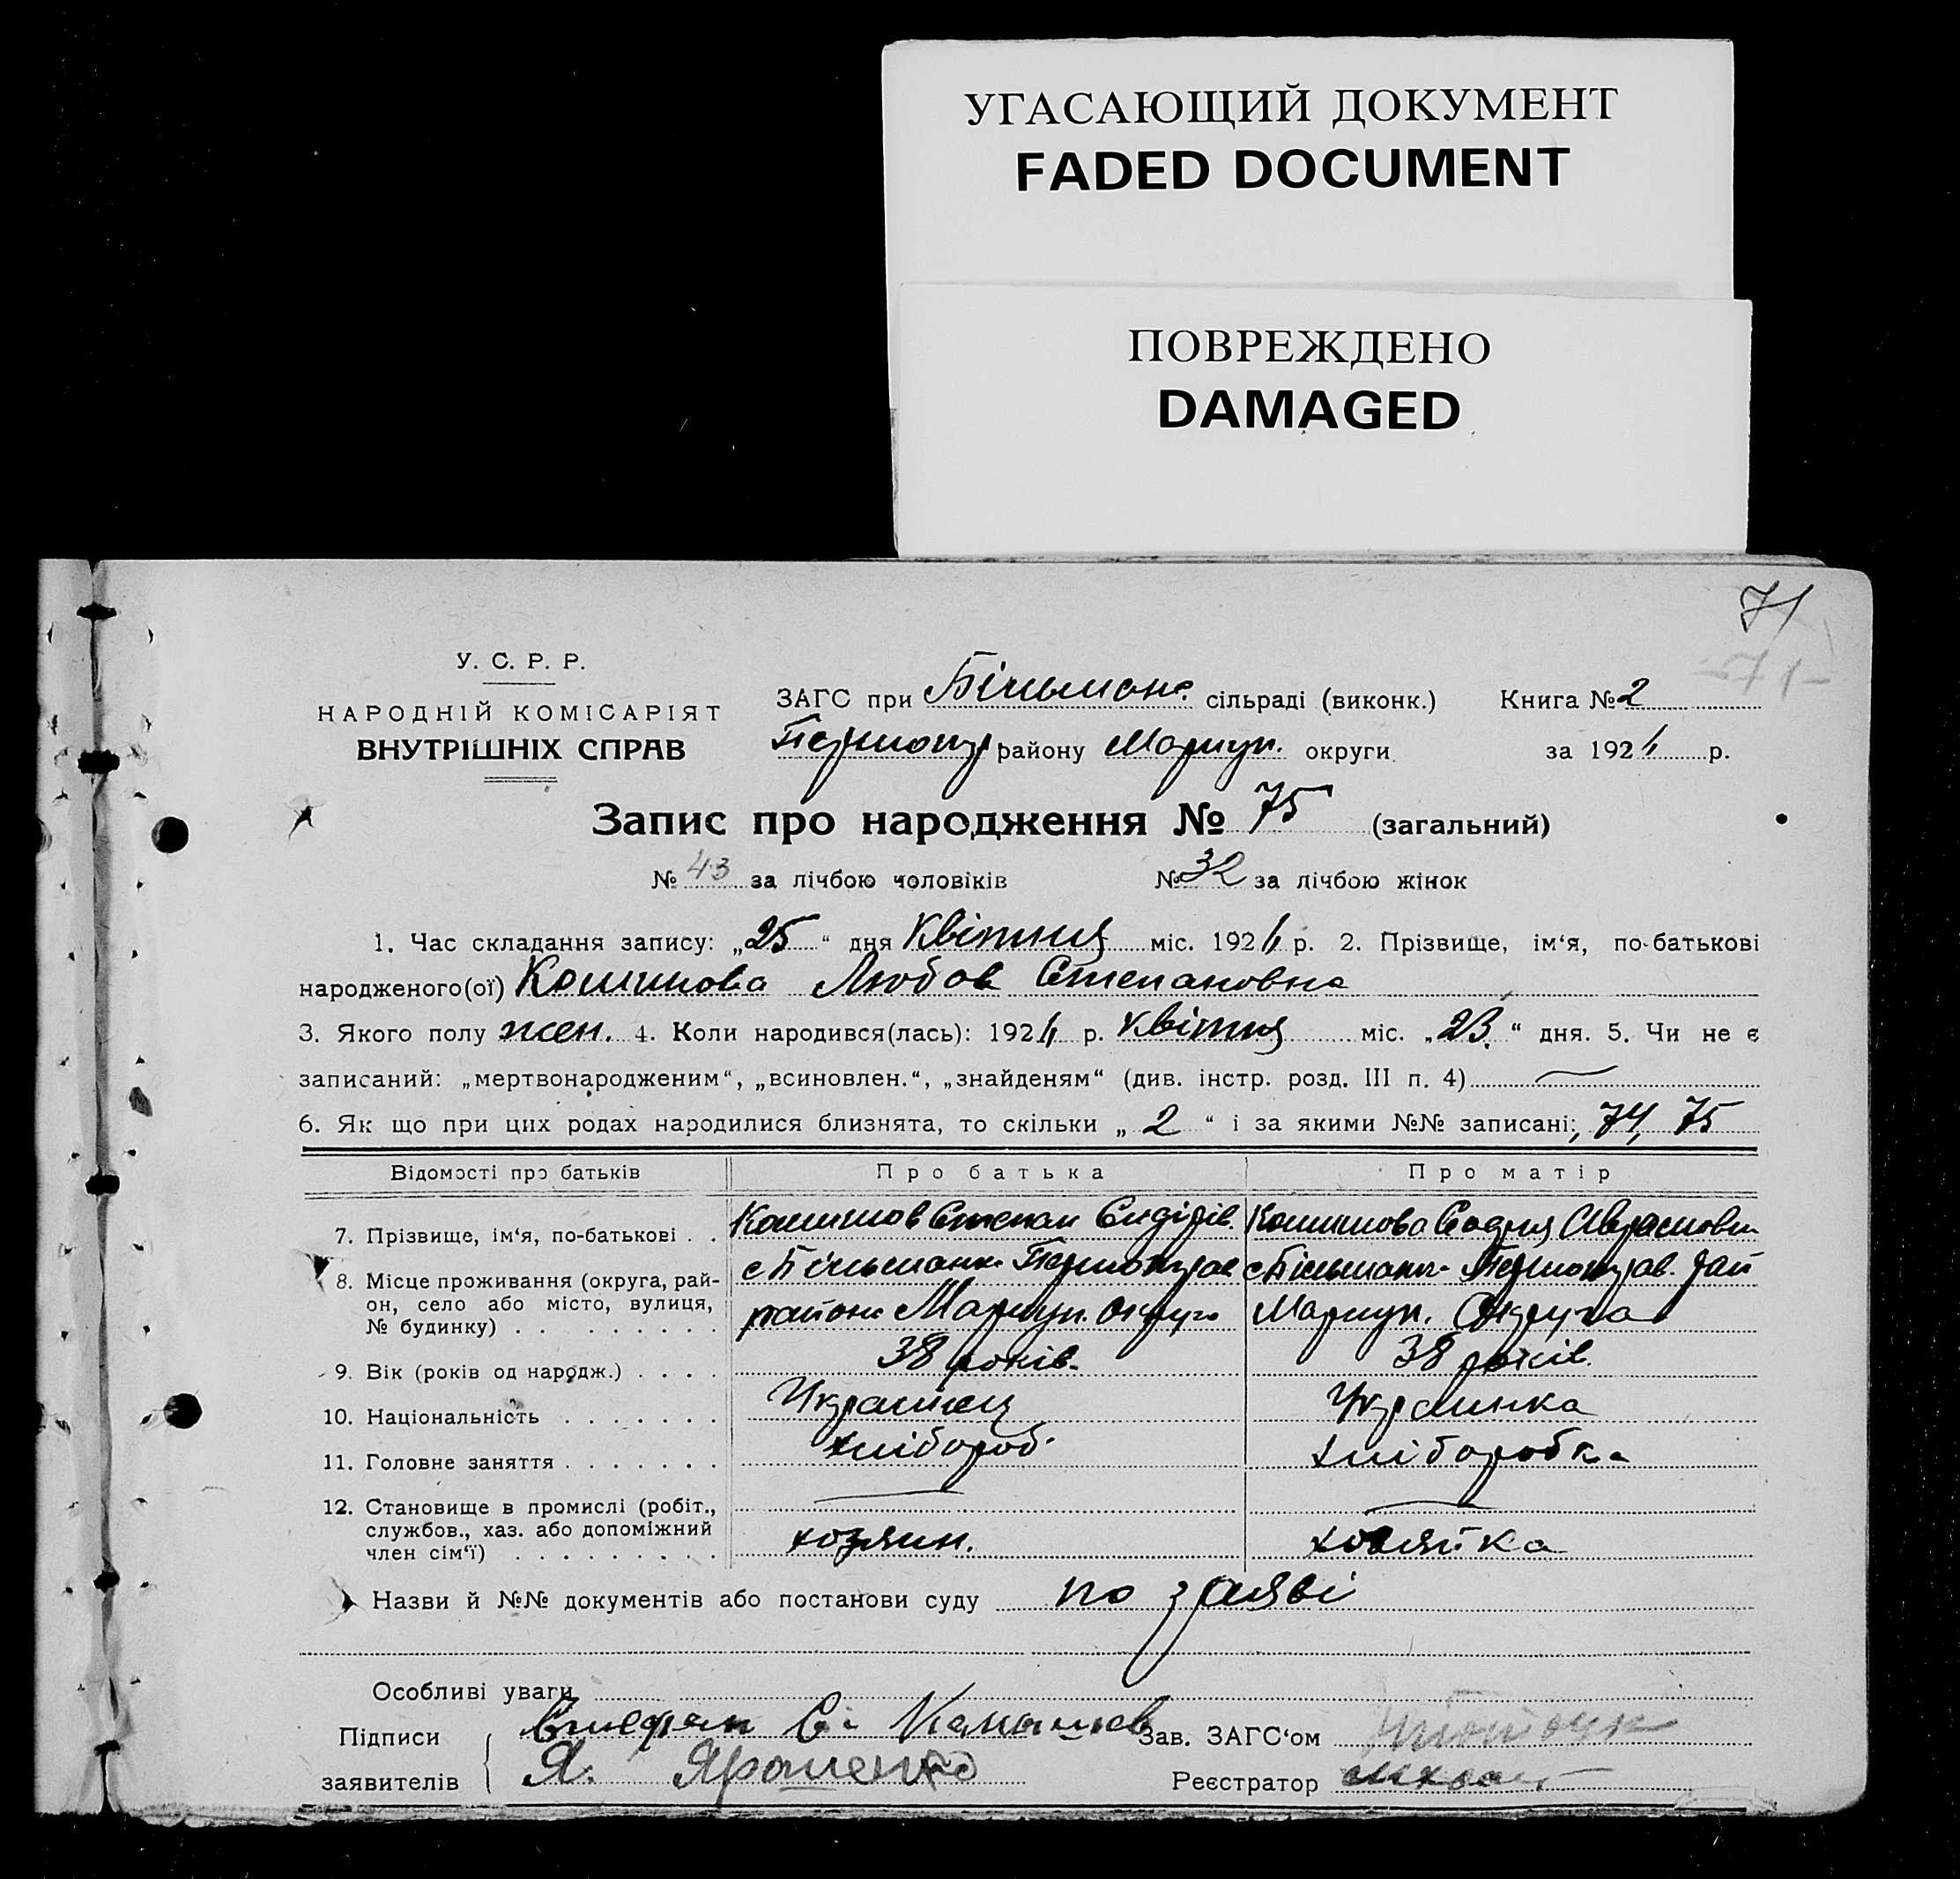 УГАСАЮЩИЙ ДОКУМЕНТ
FADED DOCUMENT
ПОВРЕЖДЕНО
DAMAGED
71
71
У. С. Р. Р.
НАРОДНІЙ КОМІСАРІЯТ
ВНУТРІШНІХ СПРАВ
ЗАГС при Більман. сільраді (виконк.) Книга № 2
району Маріуп. округи за 192 р.
Запис про народження № 75 (загальний)
№ 43 за лічбою чоловіків № 32 за лічбою жінок
1. Час складання запису: „25“ дня Квітня міс. 192 р. 2. Прізвище, ім‘я, по-батькові
народженого(ої) Любов Степановна
3. Якого полу жен. 4. Коли народився(лась): 192 р. квітня міс. „23.“ дня. 5. Чи не є
записаний: „мертвонародженим“, „всиновлен.“, „знайденям“ (див. інстр. розд. III п. 4)
6. Як що при цих родах народилися близнята, то скільки „2“ і за якими №№ записані: 74, 75
Відомості про батьків Про батька Про матір
7. Прізвище, ім‘я, по-батькові . . Степан
8. Місце проживання (округа, рай-
он, село або місто, вулиця,
№ будинку) . . . . . . . . . району Маріуп. округи Маріуп. Округа
9. Вік (років од народж.) . . . . 38 років. 38 років.
10. Національність . . . . . . . Українец Українка
11. Головне заняття . . . . . . . хлібороб. хліборобка
12. Становище в промислі (робіт.,
службов., хаз. або допоміжний
член сім‘ї) . . . . . . . . . хозяин. хозяйка
Назви й №№ документів або постанови суду по заяві
Особливі уваги
Підписи Зав. ЗАГС‘ом
заявителів Я. Ярошенко Реєстратор